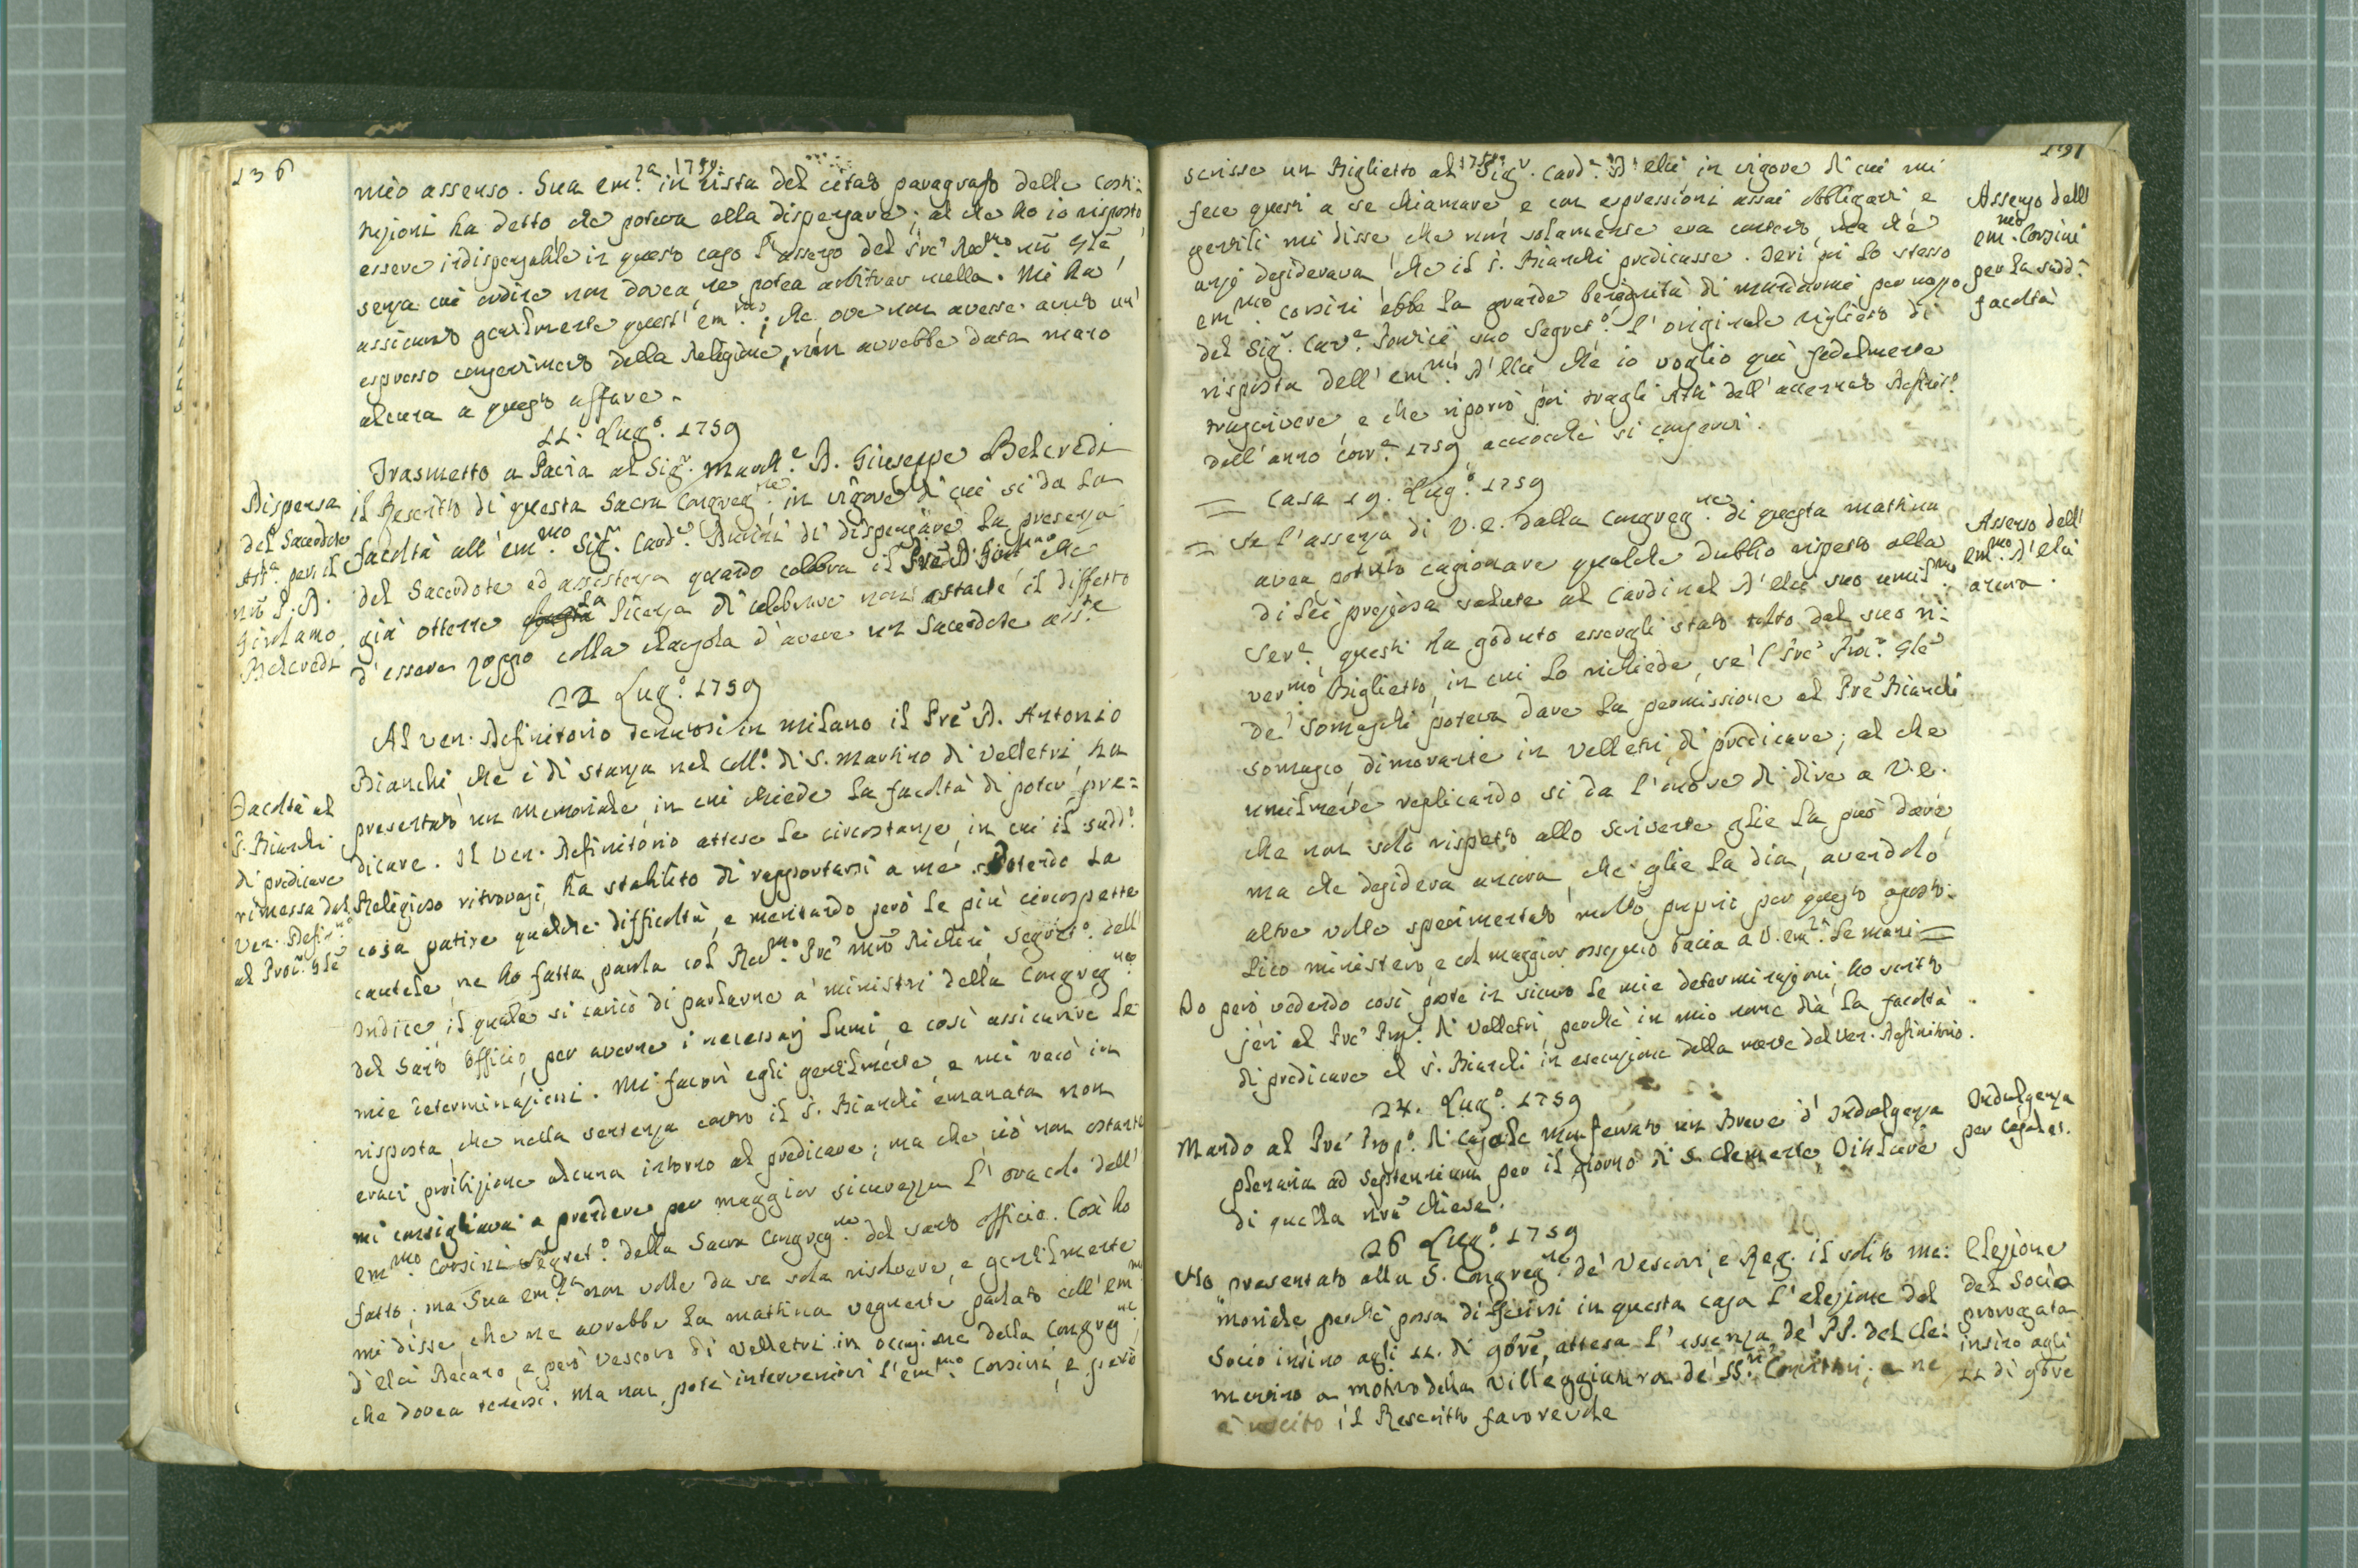 136
1759.
mio assenso. Sua Em.za in vista del citato paragrafo delle Costi=
tuzioni ha detto che poteva ella dispensare; al che ho io risposto
essere indispensabile in questo caso l'assenso del Pre Rev.mo nro Gle
senza cui ordine non dovea, ne potea arbitrar nulla. Mi ha
assicurato gentilmente quest'Em.mo, che ove non avesse avuto un'
espresso consentimento della Religione, non avrebbe data mano
alcuna a questo affare.
11. Lug.o 1759
Trasmetto a Pavia al Sig.r March.e D. Giuseppe Belcredi
il Rescritto di questa Sacra Congreg.ne, in vigore di cui si da la
facoltà all'Em.mo Sig.r Card.e Durini di dispensare la presenza
del Sacerdote ed assistenza quando celebra il Pre D. Girol.mo che
già ottenne la licenza di celebrare non ostante il diffetto
d'essere zoppo colla clausola d'avere un Sacerdote ass.te
Dispensa
del Sacerdote
Ast.e per il
nro P. D.
Girolamo
Belcredi
22 Lug.o 1759
Al Ven. Definitorio tenutosi in Milano il Pre D. Antonio
Bianchi, che è di stanza nel Coll.o di S. Martino di Velletri, ha
presentato un Memoriale, in cui chiede la facoltà di poter pre=
dicare. Il Ven. Definitorio attese le circostanze, in cui il sudd.o
Religioso ritrovasi, ha stabilito di rapportarsi a me potendo la
cosa patire qualche difficoltà, e meritando però le più circospette
cautele, ne ho fatta parola col Rev.mo Pre Mro Richini Segret.o dell'
Indice, il quale si caricò di parlarne a' ministri della Congreg.ne
del Santo Officio, per averne i necessarj lumi, e così assicurare le
mie determinazioni. Mi favorì egli gentilmente, e mi recò in
risposta, che nella sentenza contro il P. Bianchi emanata non
eraci proibizione alcuna intorno al predicare; ma che ciò non ostante
mi consigliava a prendere per maggior sicurezza l'oracolo dell'
Em.mo Corsini Segret.o della Sacra Congreg.ne del Santo Officio. Così ho
fatto; ma Sua Em.za non volle da se sola risolvere, e gentilmente
mi disse, che ne avrebbe la mattina vegnente parlato coll'Em.mo
d'Elci Decano, e però Vescovo di Velletri in occasione della Congreg.ne,
che dovea tenersi. Ma non potè intervenirvi l'Em.mo Corsini, e però
Facoltà al
P. Bianchi
di predicare
rimessa dal
Ven. Defin.o
al Pror. Gle
137
1759.
scrisse un Biglietto al Sig.r Card.e D'Elci in vigore di cui mi
fece questi a se chiamare e con espressioni assai obbliganti e
gentili mi disse che non solamente era contento, ma che
anzi desiderava, che il P. Bianchi predicasse. Ieri poi lo stesso
Em.mo Corsini ebbe la grande benignità di mandarmi per mezzo
del Sig.r Cav.e suo Segret.o l'originale viglietto di
risposta dell'Em.mo D'Elci che io voglio quì fedelmente
trascrivere, e che riporrò poi tragli Atti dell'accennato Definit.o
dell'anno corr.e 1759, acciocchè si conservi.
Assenso dell'
Em.mo Corsini
per la sudd.a
facoltà
= Casa 19. Lug.o 1759
= Se l'assenza di V.E. dalla Congreg.ne di questa mattina
avea potuto cagionare qualche dubbio rispetto alla
di lei preziosa salute al Cardinal D'Elci suo umil.mo
Ser.e, questi ha goduto essergli stato tolto dal suo ri=
ver.mo Biglietto, in cui lo richiede, se'l Pre Pror. Gle
de' Somaschi poteva dare la permissione al Pre Bianchi
Somasco, dimorante in Velletri, di predicare; al che
umilmente replicando si da l'onore di dire a V.E.
che non solo rispetto allo scrivente glie la può dare,
ma che desidera ancora, che glie la dia, avendolo
altre volte sperimentato molto proprio per questo aposto=
lico ministero, e col maggior ossequio bacia a V. Em.za le mani =
Assenso dell'
Em.mo D'Elci
ancora.
Io però vedendo così poste in sicuro le mie determinazioni, ho scritto
jeri al Pre Prop.o di Velletri, perchè in mio nome dia la facoltà
di predicare al P. Bianchi in esecuzione della mente del Ven. Definitorio.
24. Lug.o 1759
Mando al Pre Prop.o di Casale Monferrato un Breve d'Indulgenza
plenaria ad Septennium per il giorno di S. Clemente, Titolare
di quella nra Chiesa.
Indulgenza
per Casale.
26 Lug.o 1759
Ho presentato alla S. Congreg.ne de' Vescovi, e Reg. il solito me=
moriale perchè possa differirsi in questa casa l'elezione del
Socio insino agli 11. di 9bre, attesa l'assenza de' PP. del Cle=
mentino a motivo della villeggiatura de' SS.ri Convittori; e ne
è uscito il Rescritto favorevole
Elezione
del Socio
prorogata
insino agli
11 di 9bre